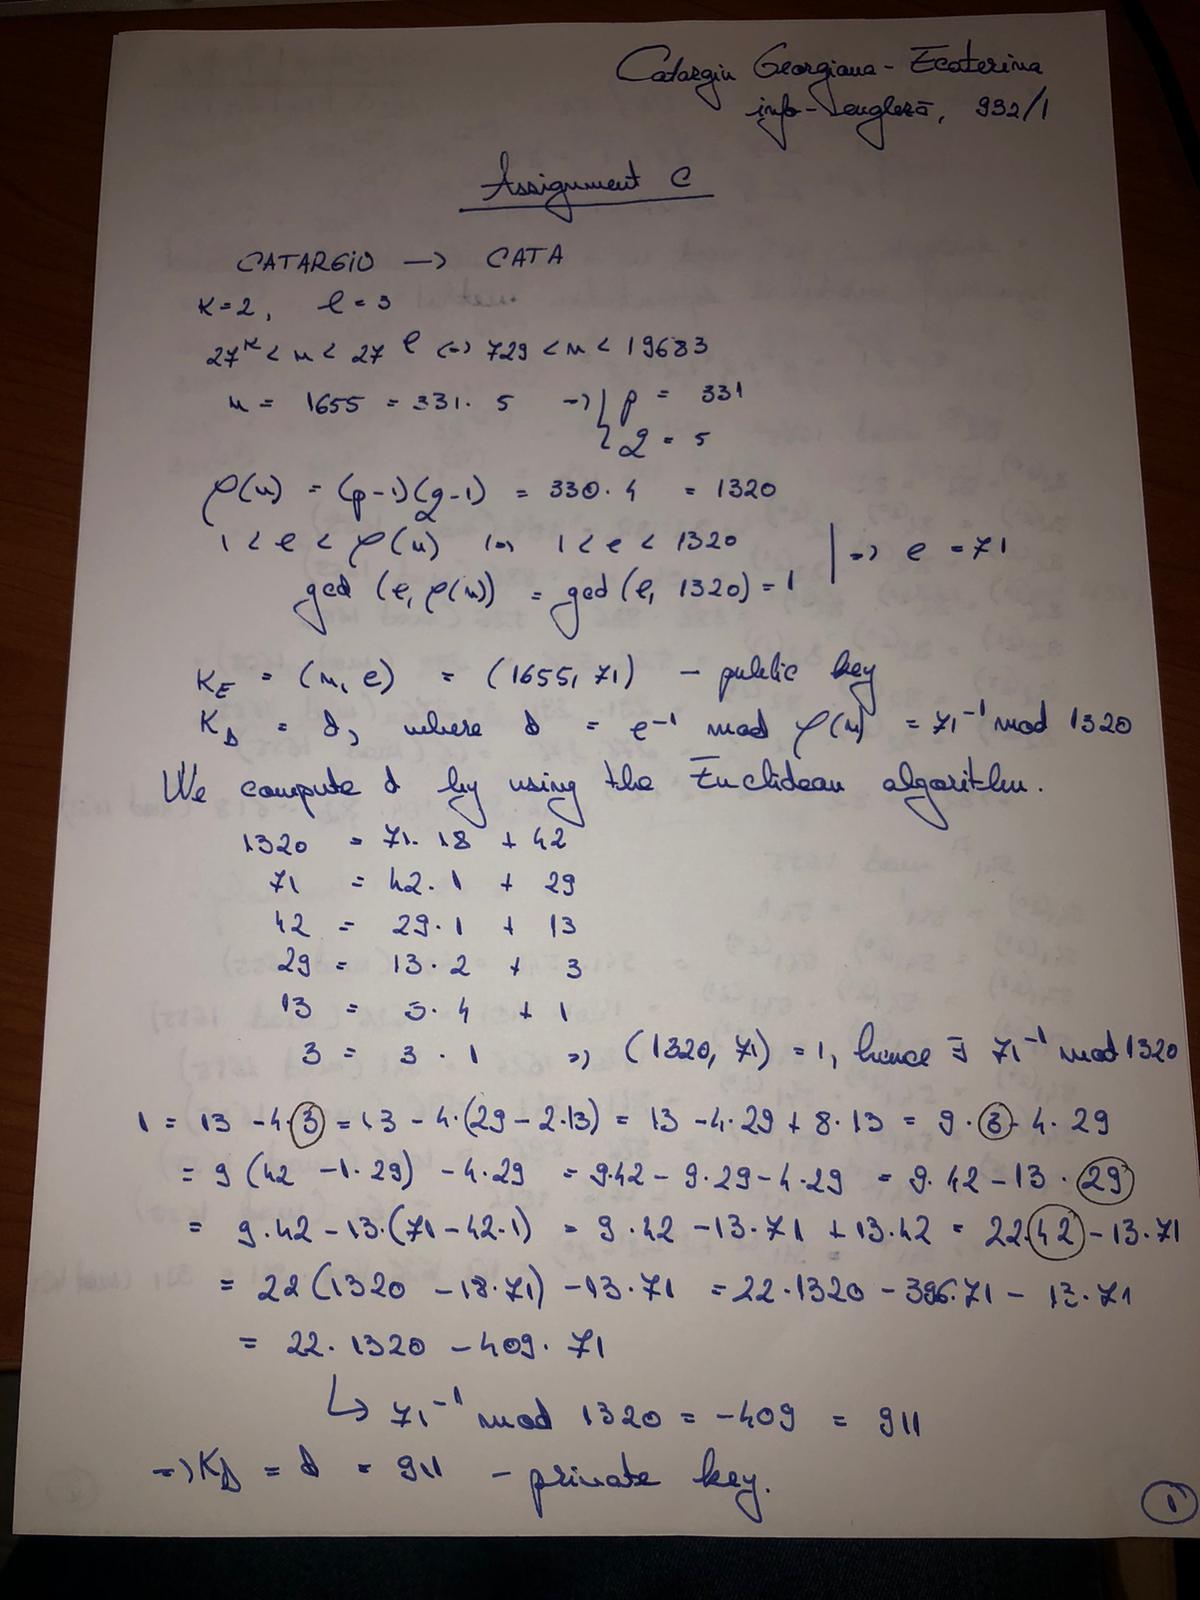 Catargiu Georgiana-Ecaterina
info-engleză, 932/1
Assignment C
CATARGIU → CATA
K=2, l=3
27^K < n < 27^l <=> 729 < n < 19683
n = 1655 = 331·5 => { p = 331
q = 5
φ(n) = (p-1)(q-1) = 330·4 = 1320
1 < e < φ(n) <=> 1 < e < 1320 | => e = 71
gcd (e, φ(n)) = gcd (e, 1320) = 1
K_E = (n, e) = (1655, 71) - public key
K_D = d, where d = e^-1 mod φ(n) = 71^-1 mod 1320
We compute d by using the Euclidean algorithm.
1320 = 71·18 + 42
71 = 42·1 + 29
42 = 29·1 + 13
29 = 13·2 + 3
13 = 3·4 + 1
3 = 3·1 => (1320, 71) = 1, hence ∃ 71^-1 mod 1320
1 = 13 - 4·3 = 13 - 4·(29 - 2·13) = 13 - 4·29 + 8·13 = 9·3 - 4·29
= 9 (42 - 1·29) - 4·29 = 9·42 - 9·29 - 4·29 = 9·42 - 13·29
= 9·42 - 13·(71 - 42·1) = 9·42 - 13·71 + 13·42 = 22·42 - 13·71
= 22 (1320 - 18·71) - 13·71 = 22·1320 - 396·71 - 13·71
= 22·1320 - 409·71
↳ 71^-1 mod 1320 = -409 = 911
=> K_D = d = 911 - private key.
1